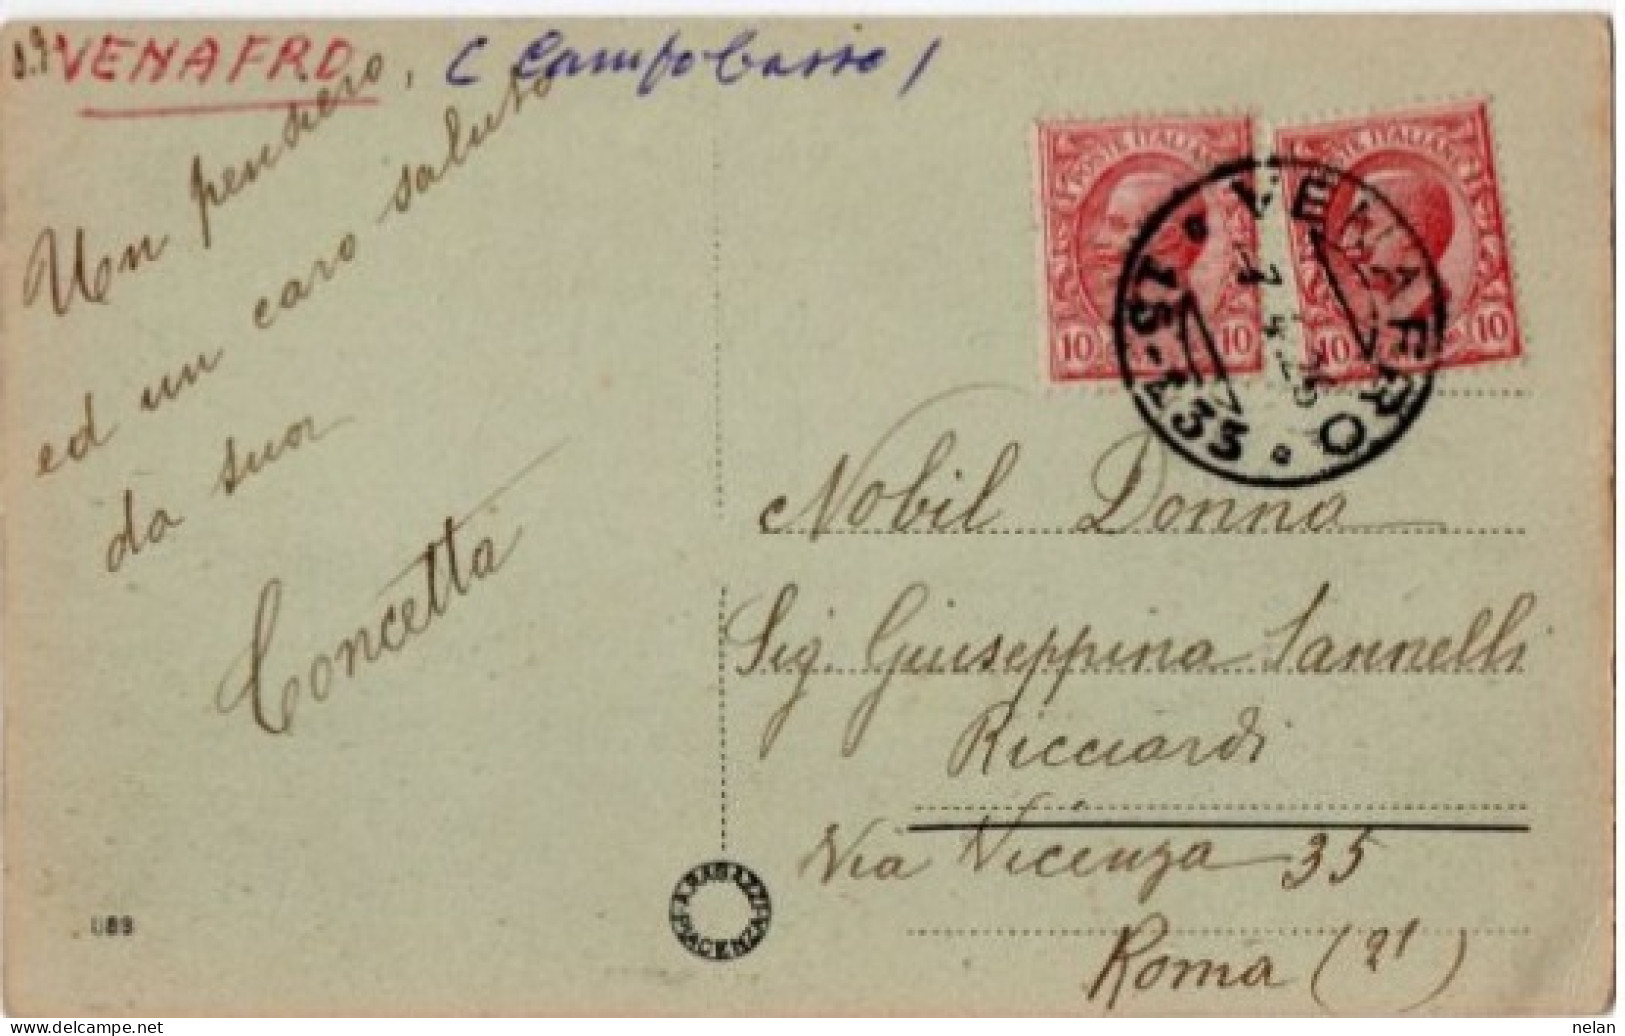 VENAFRO, (Campobasso)
Un pensiero
ed un caro saluto
da suor
Concetta
POSTE ITALIANE
10 10
POSTE ITALIANE
10 10
VENAFRO
15-133
Nobil Donna
Sig. Giuseppina Iannelli
Ricciardi
Via Vicenza 35
Roma (21)
A. RAGAZZI
PIACENZA
089
nelan